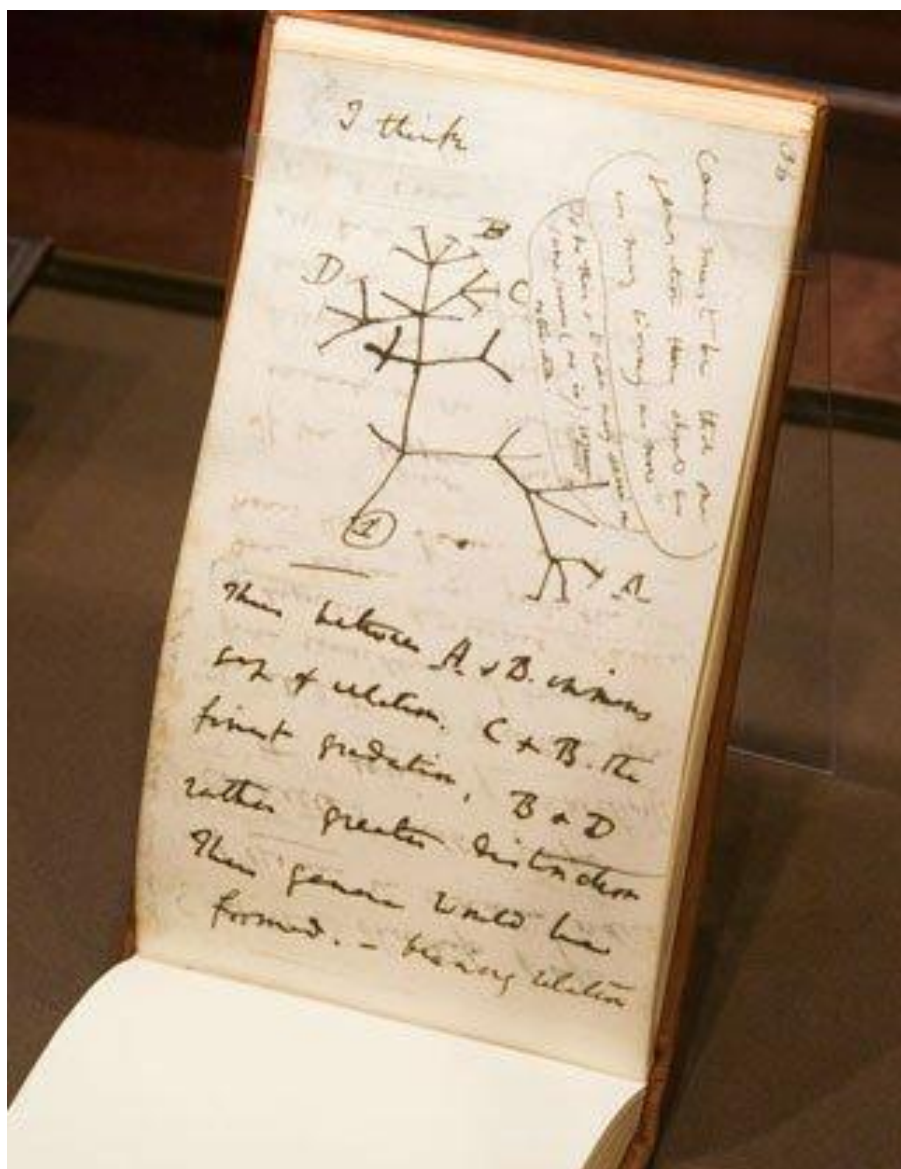 I think
B
D
C
1
A
Case must be that one
generation then should be
as many living as now
To do this & to have many species in
same genus (as is) requires
extinction.
36
Thus between A. & B. immens
gap of relation. C & B. the
finest gradation, B & D
rather greater distinction
Thus genera would be
formed. — bearing relation